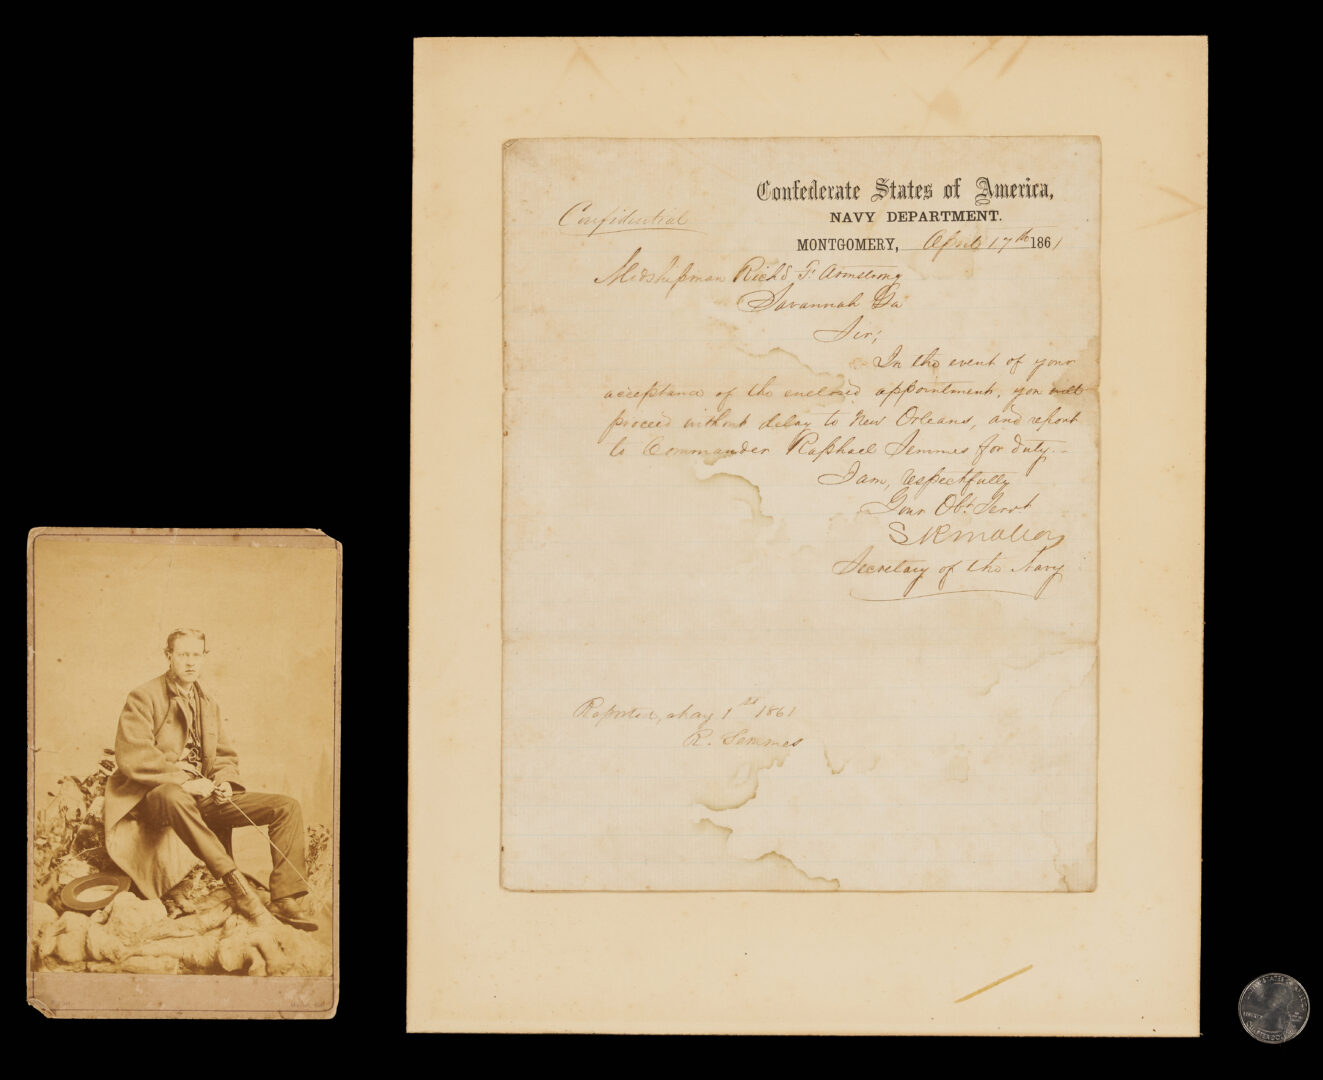 Confederate States of America,
NAVY DEPARTMENT.
Confidential
MONTGOMERY, April 17th 1861
Midshipman Richd F. Armstrong
Savannah Ga
Sir;
In the event of your
acceptance of the enclosed appointment, you will
proceed without delay to New Orleans, and report
to Commander Raphael Semmes for duty.
I am, respectfully
Your Obt Servt
S R Mallory
Secretary of the Navy
Reported, May 1st 1861
R. Semmes